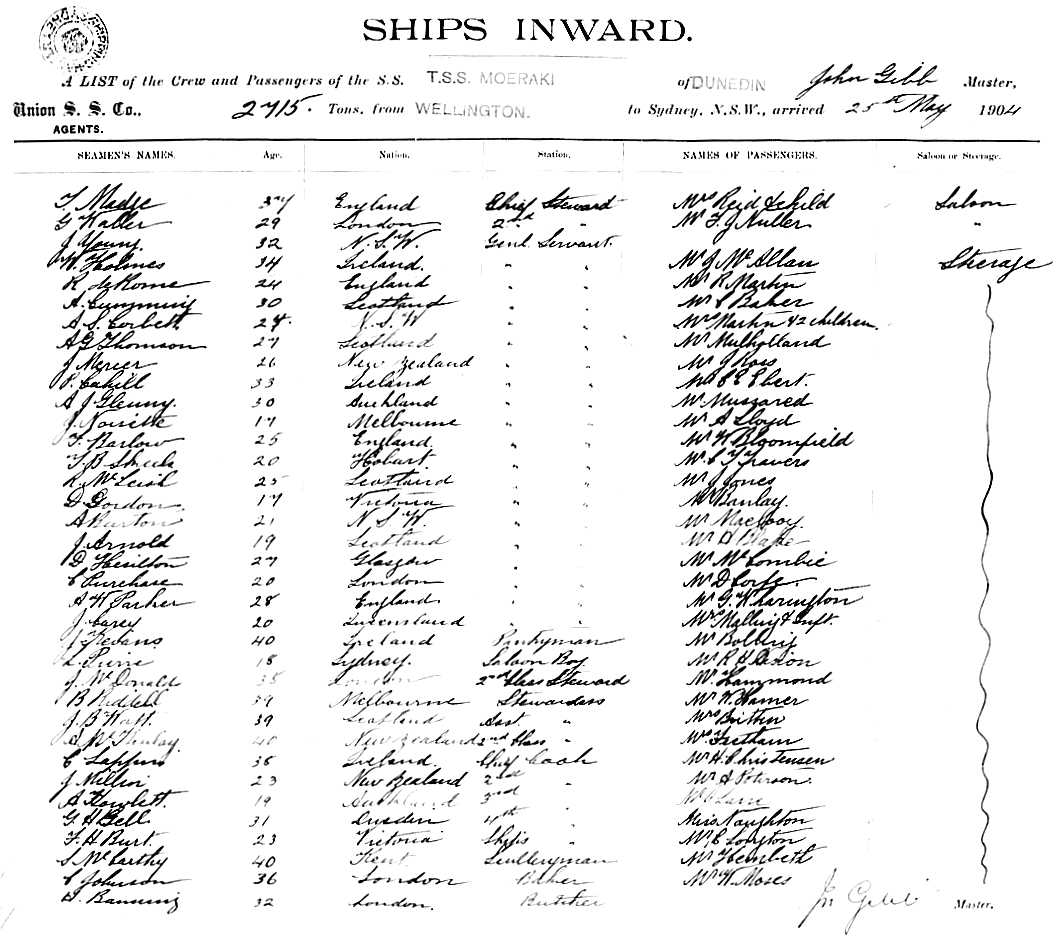 SHIPS INWARD.
A LIST of the Crew and Passengers of the S.S. T.S.S. MOERAKI of DUNEDIN John Gibb Master,
Union S. S. Co., 2715. Tons, from WELLINGTON. to Sydney, N.S.W., arrived 25th May 1904
AGENTS.
SEAMEN'S NAMES. Age. Nation. Station. NAMES OF PASSENGERS. Saloon or Steerage.
T Madge 37 England Chief Steward Mrs Reid & child Saloon
G Waller 29 London 2nd " Mr F. J Nuller "
J Young. 32 N.S.W. Genl. Servant.
W. Holmes 34 Ireland. " " Mr J McAllan Steerage
R deRome 24 England " " Mr R Martin
A. Cumming 30 Scotland " " Mr C Baker
A. S. Corbett 24 N.S.W " " Mrs Martin & 2 children.
A G Thomson 27 Scotland " " Mr Mulholland
J Mercer 26 New Zealand " " Mr J Ross
P. Cahill 33 Ireland " " C E Ebert.
A J Glenny. 30 Auckland " " Mr Musgared
J. 17 Melbourne " " Mr A Lloyd
F. Barlow 25 England. " " Mr W Bloomfield
F. B Sheils 20 Hobart. " " Mr C T Travers
R. McLeish 25 Scotland " " Mr J Jones
D Gordon. 17 Victoria " " Mr
A Burton 21 N.S.W. " " Mr
J Arnold 19 Scotland " " Mr Blake
D Hesilton 27 Glasgow " " Mr McCombie
C Purchase 20 London " " Mr D Corfe
A W Parker 28 England. " " Mr G. Wharington
J. Carey 20 Queensland " " Mrs & Inft.
J 40 Ireland Pantryman Mr
L. Purie 18 Sydney. Saloon Boy Mr R H Dixon
J. McDonald 35 London 2nd Class Steward Mr. Hammond
B Riddell 39 Melbourne Stewardess Mr W. Hamer
J. B Watt. 39 Scotland Asst. " Mrs Brittin
A. 40 New Zealand 2nd Class " Mrs Feetham
C Lappin 38 Ireland. Chief Cook Mr H. Christensen
J 23 New Zealand 2nd " Mr A Peterson.
A Howlett. 19 Auckland 3rd " Mr
G. H Bell 31 4th " Miss Naughton
F. H Burt. 23 Victoria Ships " Mr E Longton
S. McCarthy 40 Kent Sculleryman Mr
C Johnson 36 London Baker Mr W. Moses
S. Banning 32 London. Butcher Jn Gibb Master.